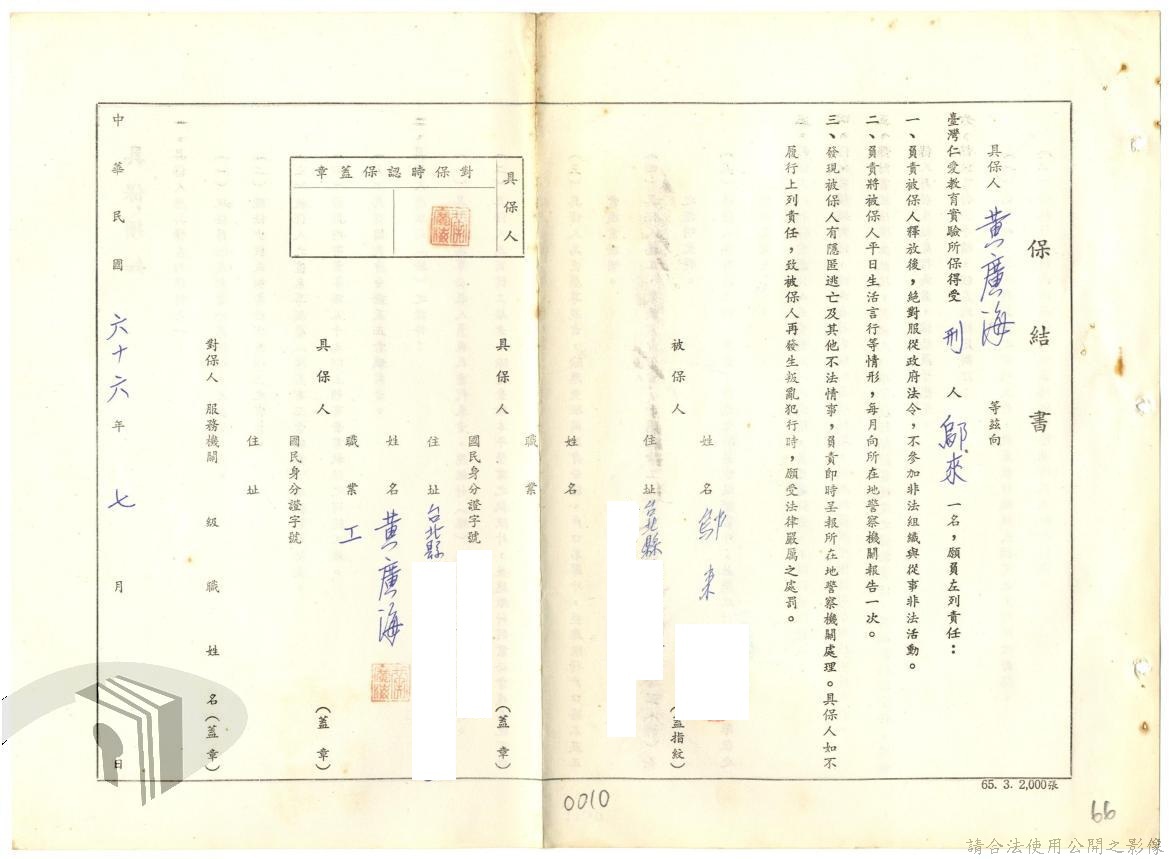 保結書
具保人 黃廣海 等茲向
臺灣仁愛教育實驗所保得受 刑 人 鄔來 一名，願負左列責任：
一、負責被保人釋放後，絕對服從政府法令，不參加非法組織與從事非法活動。
二、負責將被保人平日生活言行等情形，每月向所在地警察機關報告一次。
三、發現被保人有隱匿逃亡及其他不法情事，負責即時呈報所在地警察機關處理。具保人如不
履行上列責任，致被保人再發生叛亂犯行時，願受法律嚴厲之處罰。
被保人
姓名 鄔來
（蓋指紋）
住址 台北縣
具保人
姓名
職業
國民身分證字號
（蓋章）
住址 台北縣
姓名 黃廣海
職業 工
具保人
國民身分證字號
（蓋章）
住址
對保人 服務機關 級職 姓名（蓋章）
具保人
對保時認保蓋章
中華民國 六十六 年 七 月 日
65. 3. 2,000張
0010
66
請合法使用公開之影像